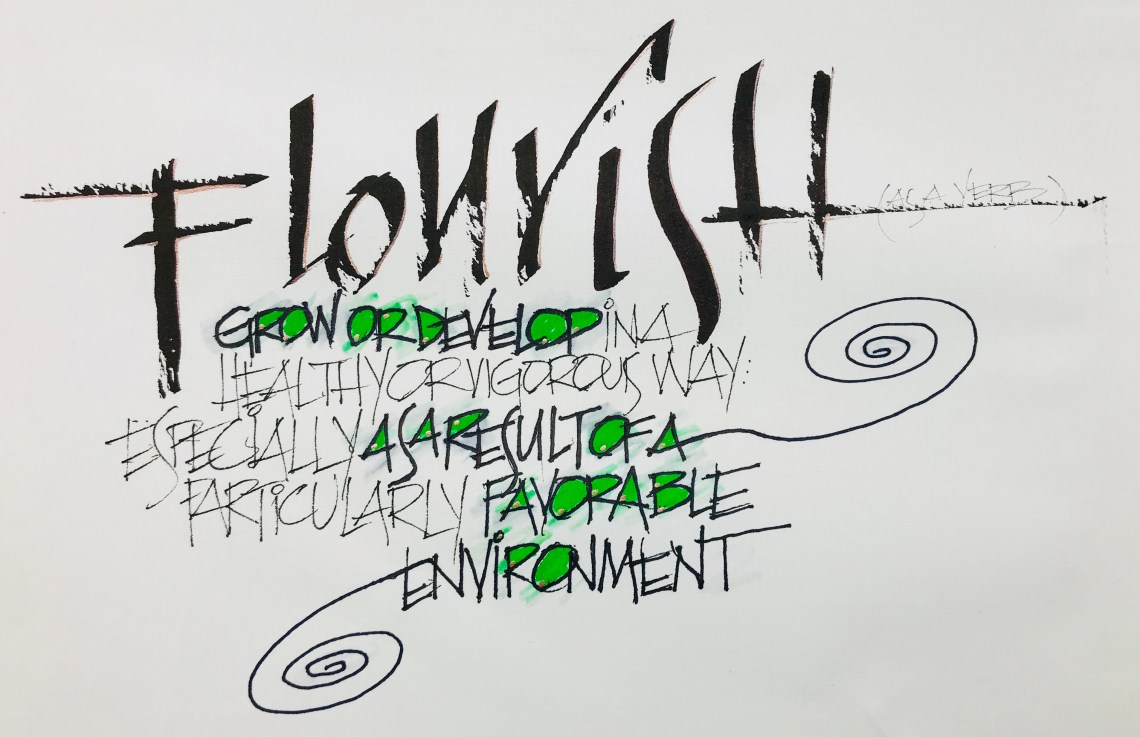 FLOURISH
(AS A VERB)
GROW OR DEVELOP IN A
HEALTHY OR VIGOROUS WAY:
ESPECIALLY AS A RESULT OF A
PARTICULARLY FAVORABLE
ENVIRONMENT